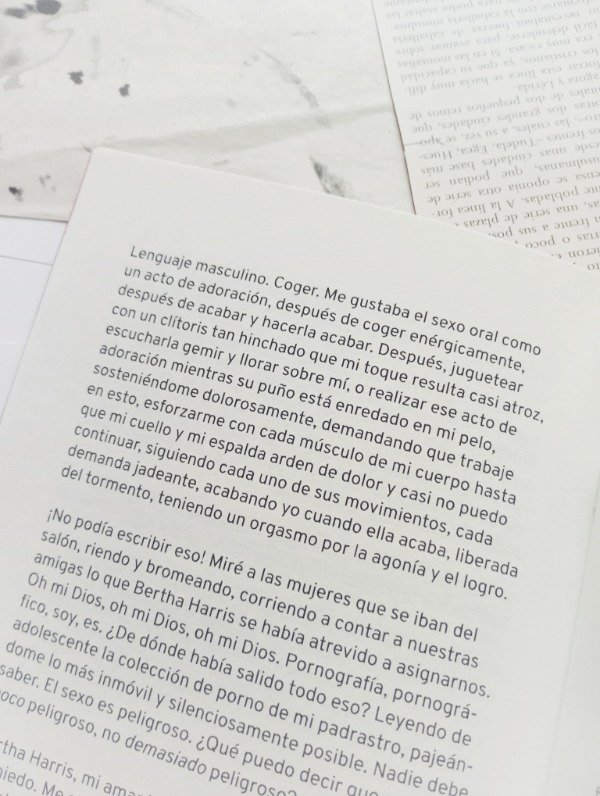 Lenguaje masculino. Coger. Me gustaba el sexo oral como
un acto de adoración, después de coger enérgicamente,
después de acabar y hacerla acabar. Después, juguetear
con un clítoris tan hinchado que mi toque resulta casi atroz,
escucharla gemir y llorar sobre mí, o realizar ese acto de
adoración mientras su puño está enredado en mi pelo,
sosteniéndome dolorosamente, demandando que trabaje
en esto, esforzarme con cada músculo de mi cuerpo hasta
que mi cuello y mi espalda arden de dolor y casi no puedo
continuar, siguiendo cada uno de sus movimientos, cada
demanda jadeante, acabando yo cuando ella acaba, liberada
del tormento, teniendo un orgasmo por la agonía y el logro.
¡No podía escribir eso! Miré a las mujeres que se iban del
salón, riendo y bromeando, corriendo a contar a nuestras
amigas lo que Bertha Harris se había atrevido a asignarnos.
Oh mi Dios, oh mi Dios, oh mi Dios. Pornografía, pornográ-
fico, soy, es. ¿De dónde había salido todo eso? Leyendo de
adolescente la colección de porno de mi padrastro, pajeán-
dome lo más inmóvil y silenciosamente posible. Nadie debe
saber. El sexo es peligroso. ¿Qué puedo decir que
poco peligroso, no demasiado peligroso?
Harris, mi
Me
o poco
frente a sus
una serie de plazas
pobladas. A la línea
se oponía otra serie de
musulmanas, que podían ser
unas ciudades base más
frentes –Tudela, Egea-Hues-
las cuales, a su vez, se apo-
otras dos grandes ciudades, que
de dos pequeños reinos de
y Lérida.
esta línea se hacía muy difí-
los cristianos, ya que su capacidad
era muy escasa. Si en las montañas
defenderse, para avanzar sobre
necesitaban de caballería
con la caballería musulma-
para poder